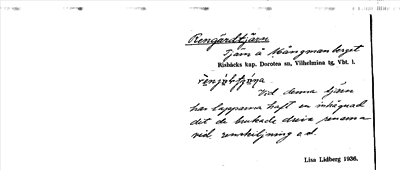 Rengårdtjärn
Tjärn å Mångmanberget
Risbäcks kap. Dorotea sn, Vilhelmina tg, Vbt. l.
Vid denna tjärn
har lapparna haft en inhägnad
dit de brukade driva renarna
vid renskiljning o.d.
Lisa Lidberg 1936.